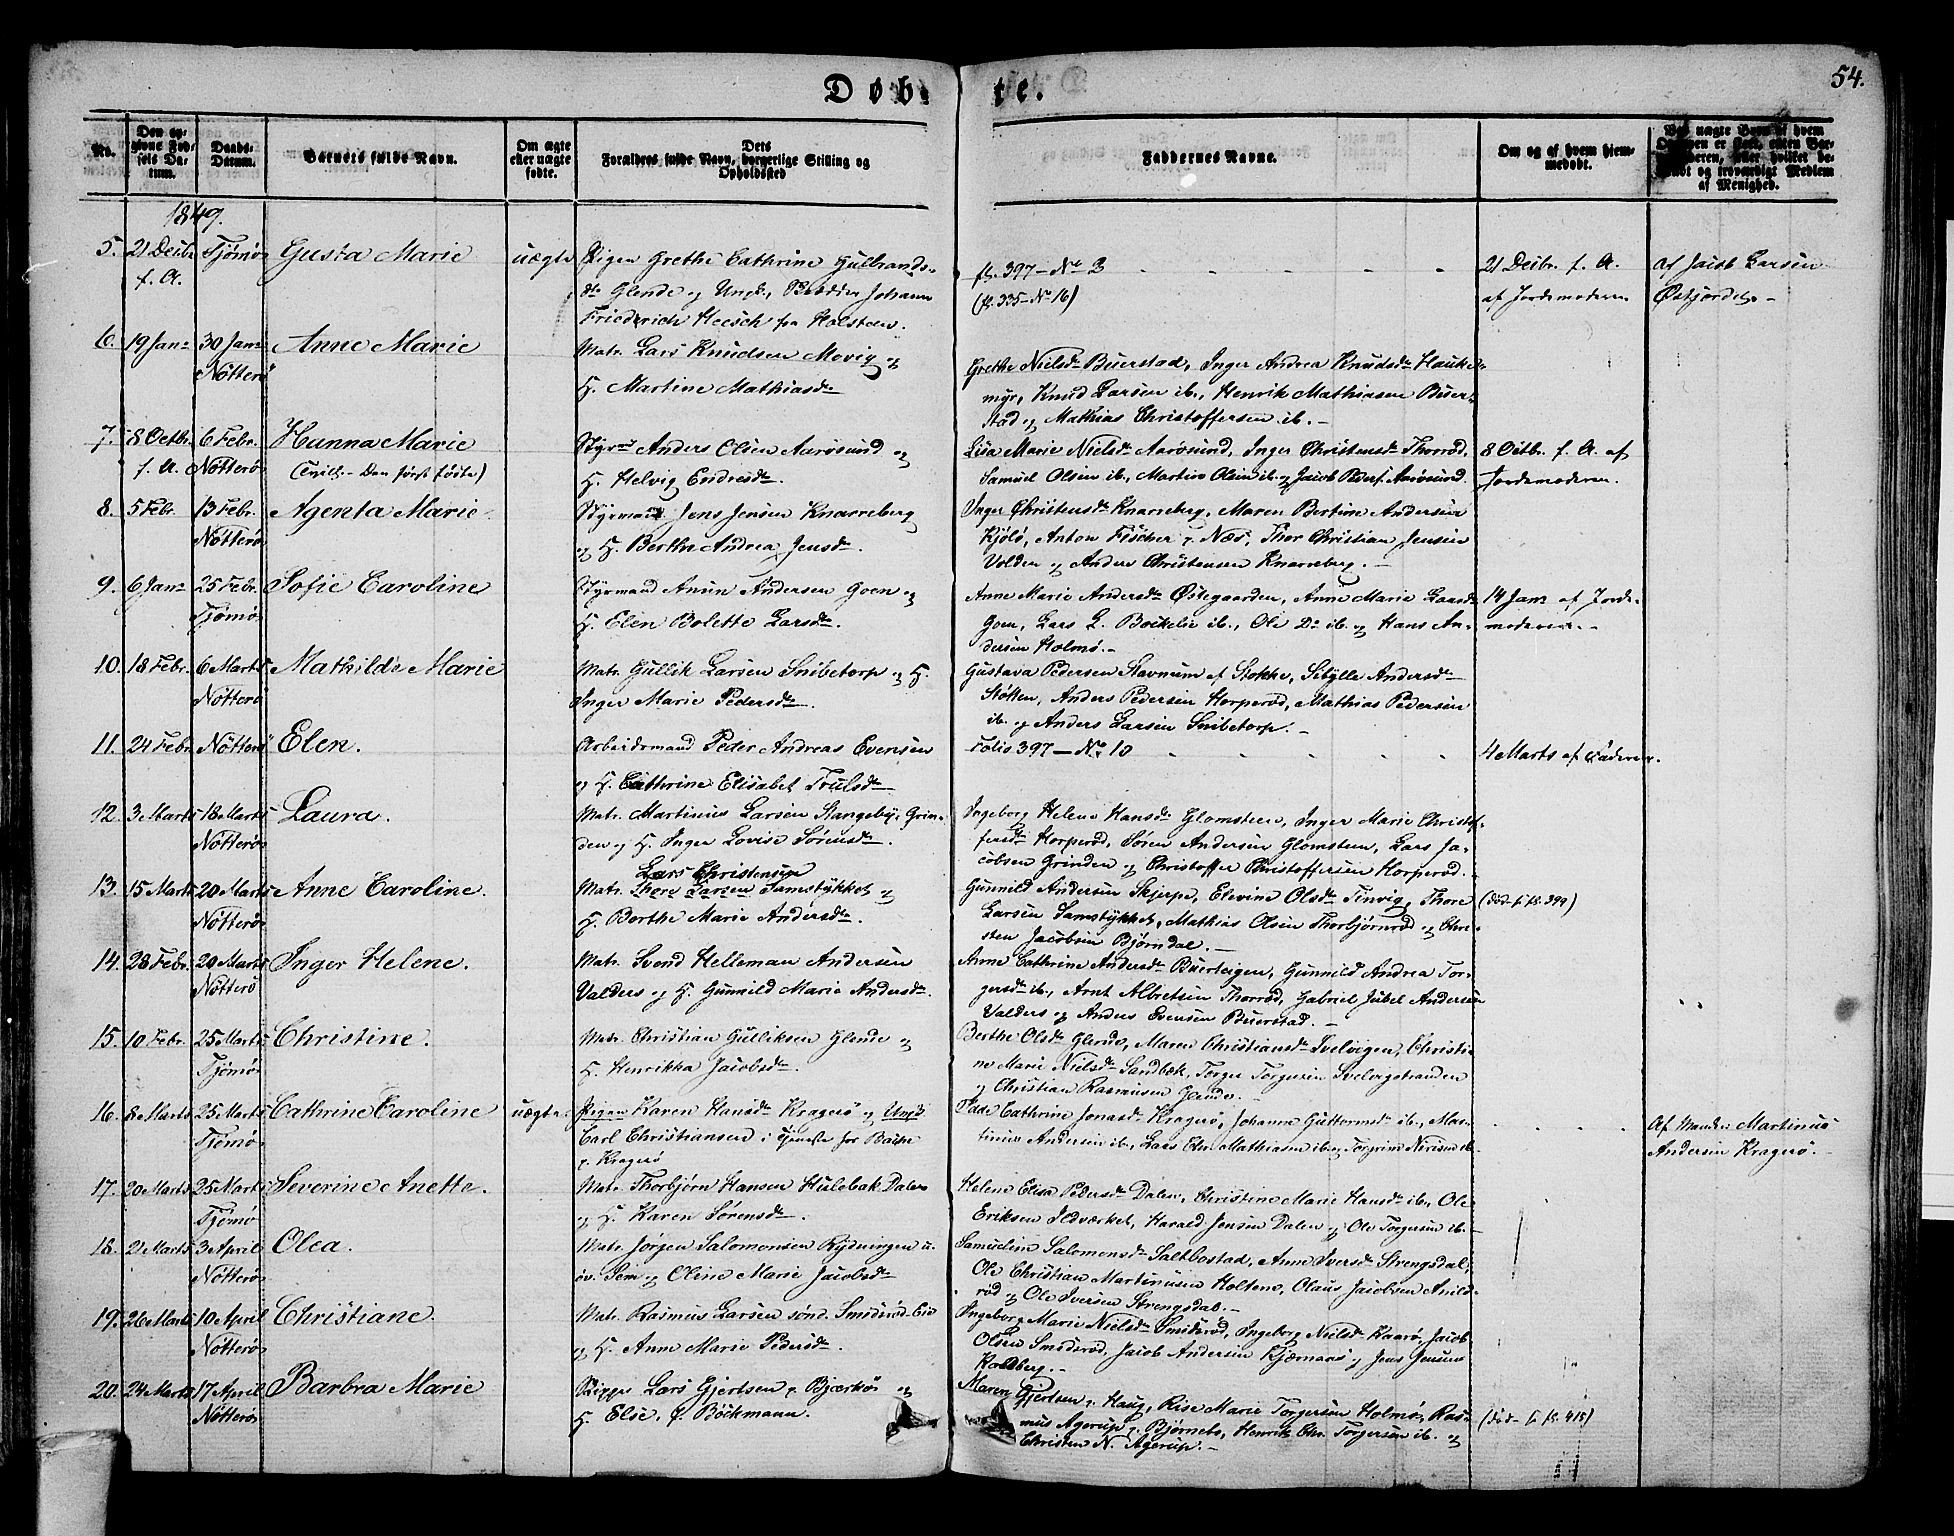 Døb-te.
54.
No.
Den opgivne Fødsels Datum.
Daabs-Datum.
Barnets fulde Navn.
Om ægte eller uægte fødte.
Forældres fulde Navn, borgerlige Stilling og Opholdssted
Faddernes Navne.
Om og af hvem hjemmedøbt.
1849.
5. 21 Decbr. f. A. Tjömö Gusta Marie uægte Pigen Grethe Cathrine Gulbrands-
dtr Glende og Ungk. Johann
Friederich Heesch fra Holsteen.
fl. 397 - No 3
(fl. 335 - No 16)
21 Decbr. f. A.
af Jordemoderen
Af Jacob Larsen
Østjordet -
6. 19 Janr 30 Janr Nötterö Anne Marie Matr. Lars Knudsen Movig og
H. Martine Mathiasdtr
Grethe Nielsdtr Buerstad, Inger Andrea Knudsdtr Hauke-
myr, Knud Larsen ib., Henrik Mathiasen Buer-
stad og Mathias Christoffersen ib. -
7. 8 Octbr. f. A. 6 Febr. Nötterö Hanna Marie
(Tvill. - Den först födte)
Styrmd Anders Olsen Aarösund og
H. Helvig Endresdtr.
Lisa Marie Nielsdtr Aarösund, Inger Christensdtr Thorröd,
Samuel Olsen ib., Martin Olsen ib. og Jacob Peders. Aarösund.
8 Octbr. f. A. af
Jordemoderen.
8. 5 Febr. 13 Febr. Nötterö Agenta Marie Styrmand Jens Jensen Knarreberg
og H. Berthe Andrea Jensdtr.
Inger Christensdtr Knarreberg, Maren Bertine Andersen
Kjölö, Anton Fischer p. Næs, Thor Christian Jensen
Volden og Anders Christensen Knarreberg. -
9. 6 Janr 25 Febr. Tjömö Sofie Caroline Styrmand Anun Andersen Goen og
H. Elen Bolette Larsdtr.
Anne Marie Andersdtr Østegaarden, Anne Marie Larsdtr
Goen, Lars L. ib., Ole Do ib. og Hans An-
dersen Holmö. -
14 Janr af Jorde-
moderen. -
10. 18 Febr. 6 Marts Nötterö Mathilde Marie Matr. Gullik Larsen Snibetorp og H.
Inger Marie Pedersdtr.
Gustava Pedersen Stavnum af Stokke, Sibylle Andersdtr
Stokken, Anders Pedersen Horperöd, Mathias Pedersen
ib. og Anders Larsen Snibetorp. -
11. 24 Febr. Nötterö Elen. Arbeidsmand Peder Andreas Evensen
og H. Cathrine Elisabet Trulsdtr
Folio 397 - No 10
4 Marts af Faderen.
12. 3 Marts 18 Marts Nötterö Laura. Matr. Martinus Larsen Stangeby, Grin-
den og H. Inger Lovise Sörensdtr.
Ingeborg Helene Hansdtr Glomsteen, Inger Marie Christof-
fersdtr Horperöd, Sören Andersen Glomsteen, Lars Ja-
cobsen Grinden og Christoffer Christoffersen Horperöd. -
13. 15 Marts 20 Marts Nötterö Anne Caroline. Lars Christensen
Matr. Thore Larsen Samstykket og
H. Berthe Marie Andersdtr.
Gunnild Andersen Skjerpe, Elevine Olsdtr Tinvig, Thore
Larsen Samstykket, Mathias Olsen Thorbjörnröd og Chri-
sten Jacobsen Bjørndal. -
(död - f. fl. 399)
14. 28 Febr. 20 Marts Nötterö Inger Helene. Matr. Svend Helleman Andersen
Valders og H. Gunnild Marie Andersdtr.
Anne Cathrine Andersdtr Buerteigen, Gunnild Andrea Tor-
gersdtr ib., Arnt Albretsen Thorröd, Gabriel Jubel Andersen
Valders og Anders Evensen Buerstad. -
15. 10 Febr. 25 Marts Tjömö Christine. Matr. Christian Gulliksen Glende og
H. Henrikka Jacobsdtr.
Berthe Olsdtr Glende, Maren Christiansdtr Svelvigen, Christi-
ne Marie Nielsdtr Sandbæk, Torger Torgersen Svelvigstranden
og Christian Rasmusen Glende.
16. 8 Marts 25 Marts Tjömö Cathrine Caroline uægte. Pigen Karen Hansdtr Kragerö og Ungk.
Carl Christiansen i Tjeneste hos
p. Kragerö
Cathrine Jonasdtr Kragerö, Johanne Guttormsdtr ib., Mar-
tinus Andersen ib., Lars Chr. Mathiasen ib. og ib.
Af Manden Martinus
Andersen Kragerö. -
17. 20 Marts 25 Marts Tjömö Severine Anette. Matr. Thorbjörn Hansen Hulebak Dalen
og H. Karen Sörensdtr.
Helene Elisa Pedersdtr Dalen, Christine Marie Hansdtr ib., Ole
Eriksen Ildværket, Harald Jensen Dalen og Ole Torgersen ib. -
18. 2 Marts 3 April Nötterö Olea. Matr. Jörgen Salomonsen Rydningen u.
öv. Sem og Oline Marie Jacobsdtr
Samueline Salomonsdtr Saltbostad, Anne Iversdtr Strengsdal,
Ole Christian Martinusen Holtene, Claus Jacobsen Arild-
röd og Ole Iversen Strengsdal. -
19. 26 Marts 10 April Nötterö Christiane. Matr. Rasmus Larsen sönd. Smidsröd-Eie
og H. Anne Marie Pedersdtr.
Ingeborg Marie Nielsdtr Smidsröd, Ingeborg Nielsdtr Kaarö, Jacob
Olsen Smidsröd, Jacob Andersen Kjærnaas og Jens Jensen
Kolberg. -
20. 24 Marts 17 April Nötterö Barbra Marie Skipper Lars Gjertsen p. Bjerkö og
H. Elise, f. Böckmann.
Maren Gjertsen p. Haug, Rise Marie Torgersen Holmö, Ras-
mus Agerup p. Bjørnebo, Henrik Chr. Torgersen ib. og
Christen N. Agerup. -
(död - f. fl. 415)